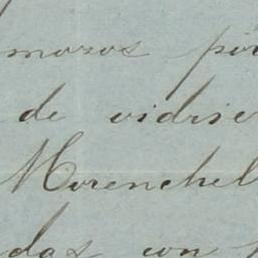 moros pin
de vidrie
Morenchel
das con p